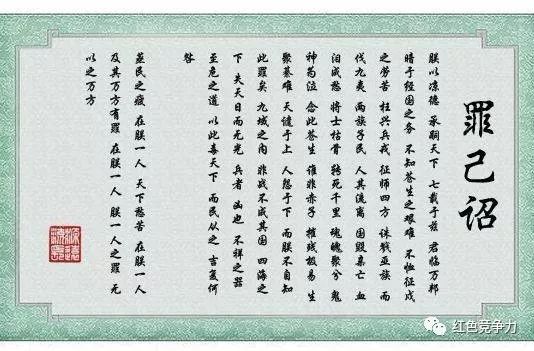 罪己诏
朕以凉德 承嗣天下 七载于兹 君临万邦
暗于经国之务 不知苍生之艰难 不恤征戍
之劳苦 枉兴兵戎 征师四方 诛戮亚族 而
伐九夷 两族子民 人其流离 国毁家亡 血
泪成愁 将士枯骨 转死千里 魂魄聚兮 鬼
神为泣 念此苍生 谁非赤子 摧残极易 生
聚綦难 天谴于上 人怨于下 而朕不自知
此罪矣 九域之内 非战不成其国 四海之
下 夫天日而无光 兵者 凶也 不祥之器
至危之道 以此毒天下 而民从之 吉复何
咎
蒸民之疲 在朕一人 天下愁苦 在朕一人
及其万方有罪 在朕一人 朕一人之罪 无
以之万方
红色竞争力